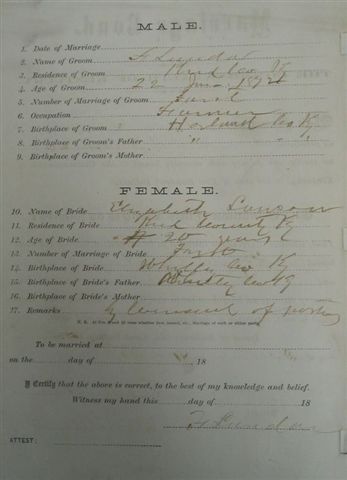 MALE.
1. Date of Marriage
2. Name of Groom
3. Residence of Groom Knox Co Ky
4. Age of Groom 22
5. Number of Marriage of Groom First
6. Occupation Farmer
7. Birthplace of Groom Harland Co Ky
8. Birthplace of Groom's Father " " "
9. Birthplace of Groom's Mother
FEMALE.
10. Name of Bride Elizabeth
11. Residence of Bride Knox County Ky
12. Age of Bride 20 years
13. Number of Marriage of Bride First
14. Birthplace of Bride Whitley Co Ky
15. Birthplace of Bride's Father Whitley Co Ky
16. Birthplace of Bride's Mother
17. Remarks By Consent of parties
To be married at
on the day of 18
I Certify that the above is correct, to the best of my knowledge and belief.
Witness my hand this day of 18
ATTEST: